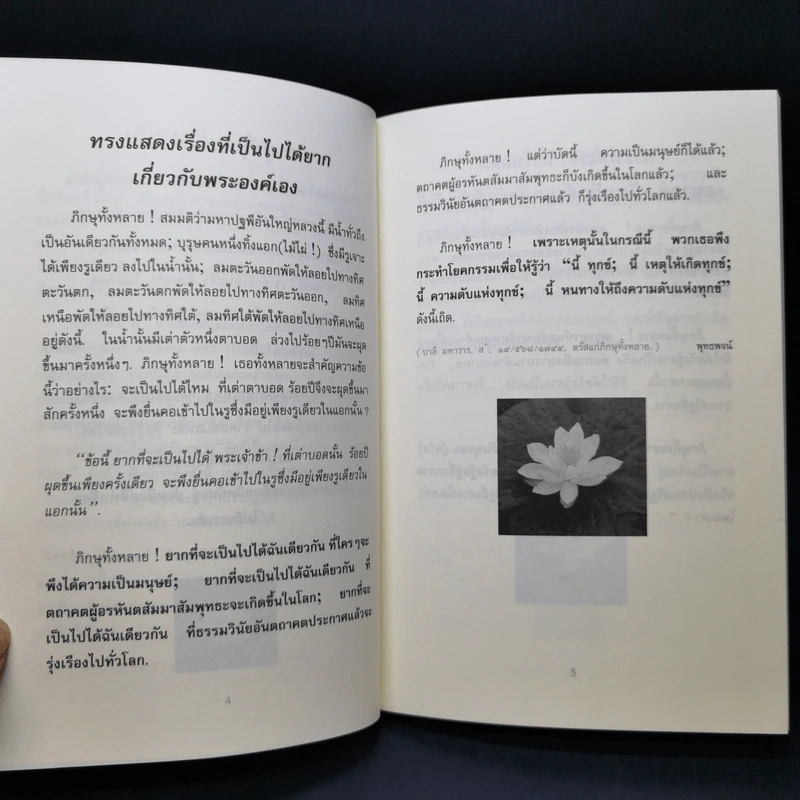 ทรงแสดงเรื่องที่เป็นไปได้ยาก
เกี่ยวกับพระองค์เอง
ภิกษุทั้งหลาย ! สมมติว่ามหาปฐพีอันใหญ่หลวงนี้ มีน้ำทั่วถึง
เป็นอันเดียวกันทั้งหมด; บุรุษคนหนึ่งทิ้งแอก(ไม้ไผ่ !) ซึ่งมีรูเจาะ
ได้เพียงรูเดียว ลงไปในน้ำนั้น; ลมตะวันออกพัดให้ลอยไปทางทิศ
ตะวันตก, ลมตะวันตกพัดให้ลอยไปทางทิศตะวันออก, ลมทิศ
เหนือพัดให้ลอยไปทางทิศใต้, ลมทิศใต้พัดให้ลอยไปทางทิศเหนือ
อยู่ดังนี้. ในน้ำนั้นมีเต่าตัวหนึ่งตาบอด ล่วงไปร้อยๆปีมันจะผุด
ขึ้นมาครั้งหนึ่งๆ. ภิกษุทั้งหลาย ! เธอทั้งหลายจะสำคัญความข้อ
นี้ว่าอย่างไร: จะเป็นไปได้ไหม ที่เต่าตาบอด ร้อยปีจึงจะผุดขึ้นมา
สักครั้งหนึ่ง จะพึงยื่นคอเข้าไปในรูซึ่งมีอยู่เพียงรูเดียวในแอกนั้น ?
“ข้อนี้ ยากที่จะเป็นไปได้ พระเจ้าข้า ! ที่เต่าตาบอดนั้น ร้อยปี
ผุดขึ้นเพียงครั้งเดียว จะพึงยื่นคอเข้าไปในรูซึ่งมีอยู่เพียงรูเดียวใน
แอกนั้น”.
ภิกษุทั้งหลาย ! ยากที่จะเป็นไปได้ฉันเดียวกัน ที่ใครๆจะ
พึงได้ความเป็นมนุษย์; ยากที่จะเป็นไปได้ฉันเดียวกัน ที่
ตถาคตผู้อรหันตสัมมาสัมพุทธะจะเกิดขึ้นในโลก; ยากที่จะ
เป็นไปได้ฉันเดียวกัน ที่ธรรมวินัยอันตถาคตประกาศแล้วจะ
รุ่งเรืองไปทั่วโลก.
4
ภิกษุทั้งหลาย ! แต่ว่าบัดนี้ ความเป็นมนุษย์ก็ได้แล้ว;
ตถาคตผู้อรหันตสัมมาสัมพุทธะก็บังเกิดขึ้นในโลกแล้ว; และ
ธรรมวินัยอันตถาคตประกาศแล้ว ก็รุ่งเรืองไปทั่วโลกแล้ว.
ภิกษุทั้งหลาย ! เพราะเหตุนั้นในกรณีนี้ พวกเธอพึง
กระทำโยคกรรมเพื่อให้รู้ว่า “นี้ ทุกข์; นี้ เหตุให้เกิดทุกข์;
นี้ ความดับแห่งทุกข์; นี้ หนทางให้ถึงความดับแห่งทุกข์”
ดังนี้เถิด.
( บาลี มหาวาร. สํ. ๑๙/๕๖๘/๑๗๔๔, ตรัสแก่ภิกษุทั้งหลาย. ) พุทธพจน์
5